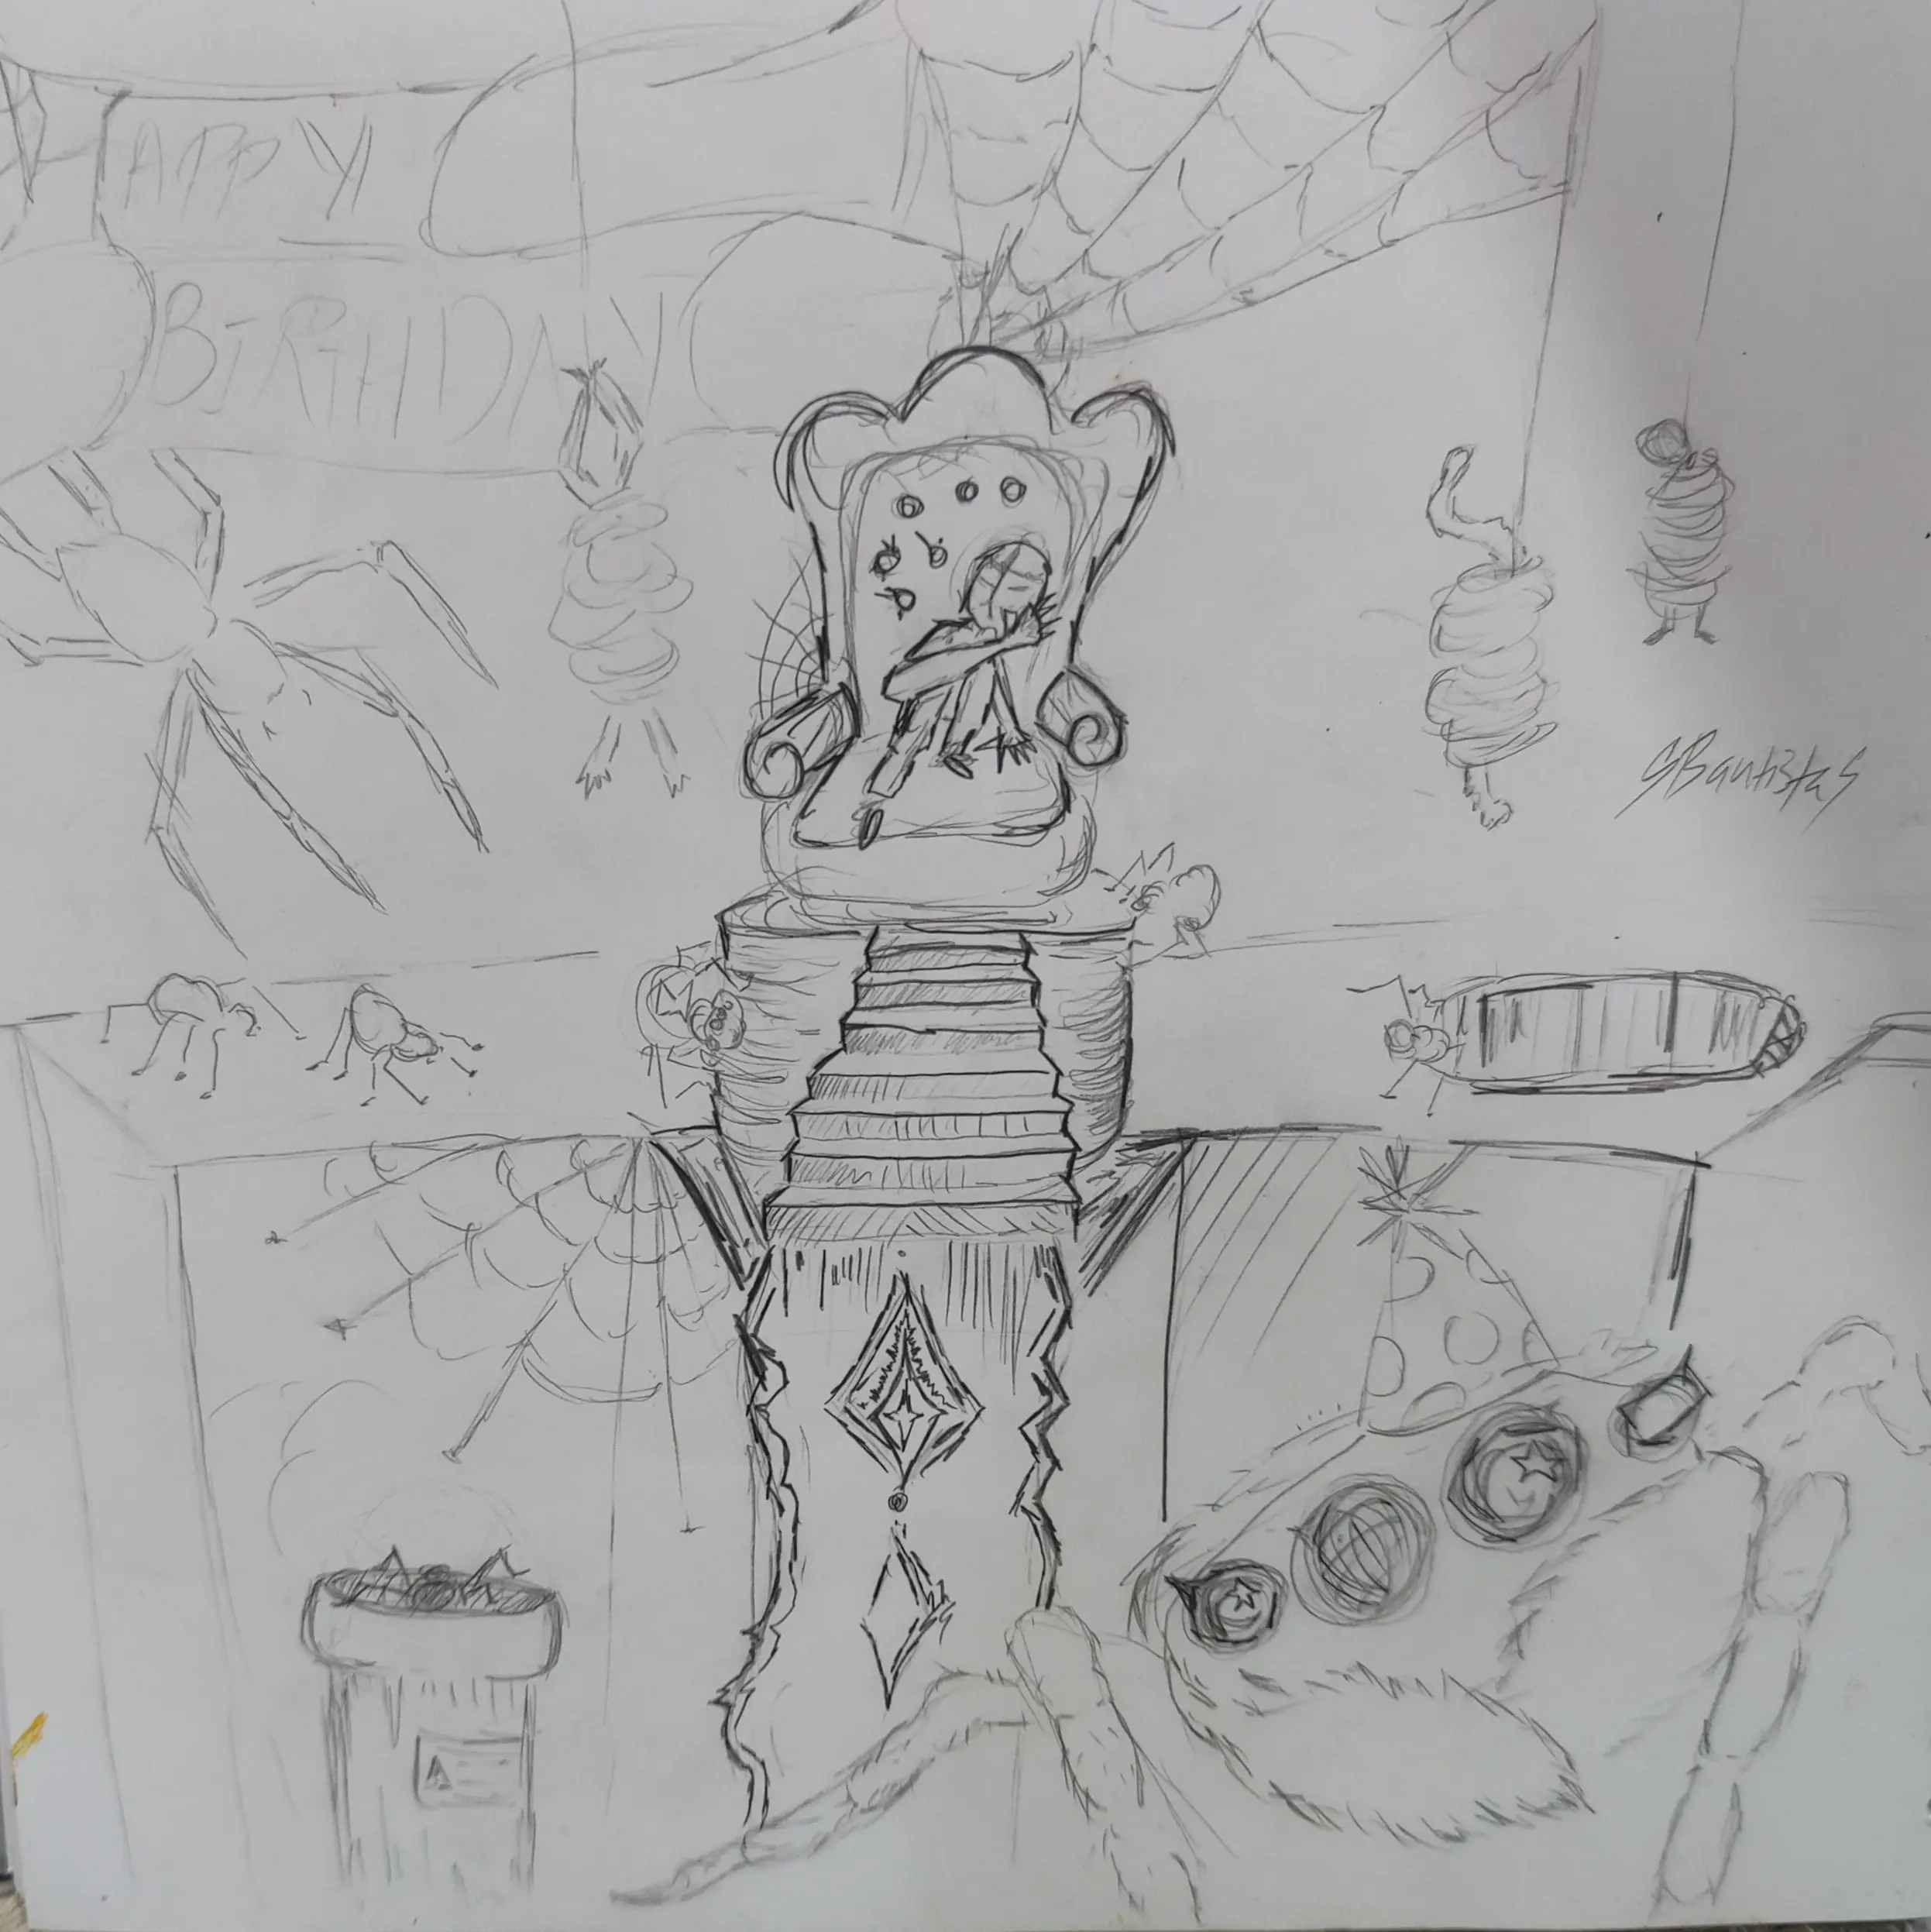 HAPPY
BIRTHDAY
SBautistaS